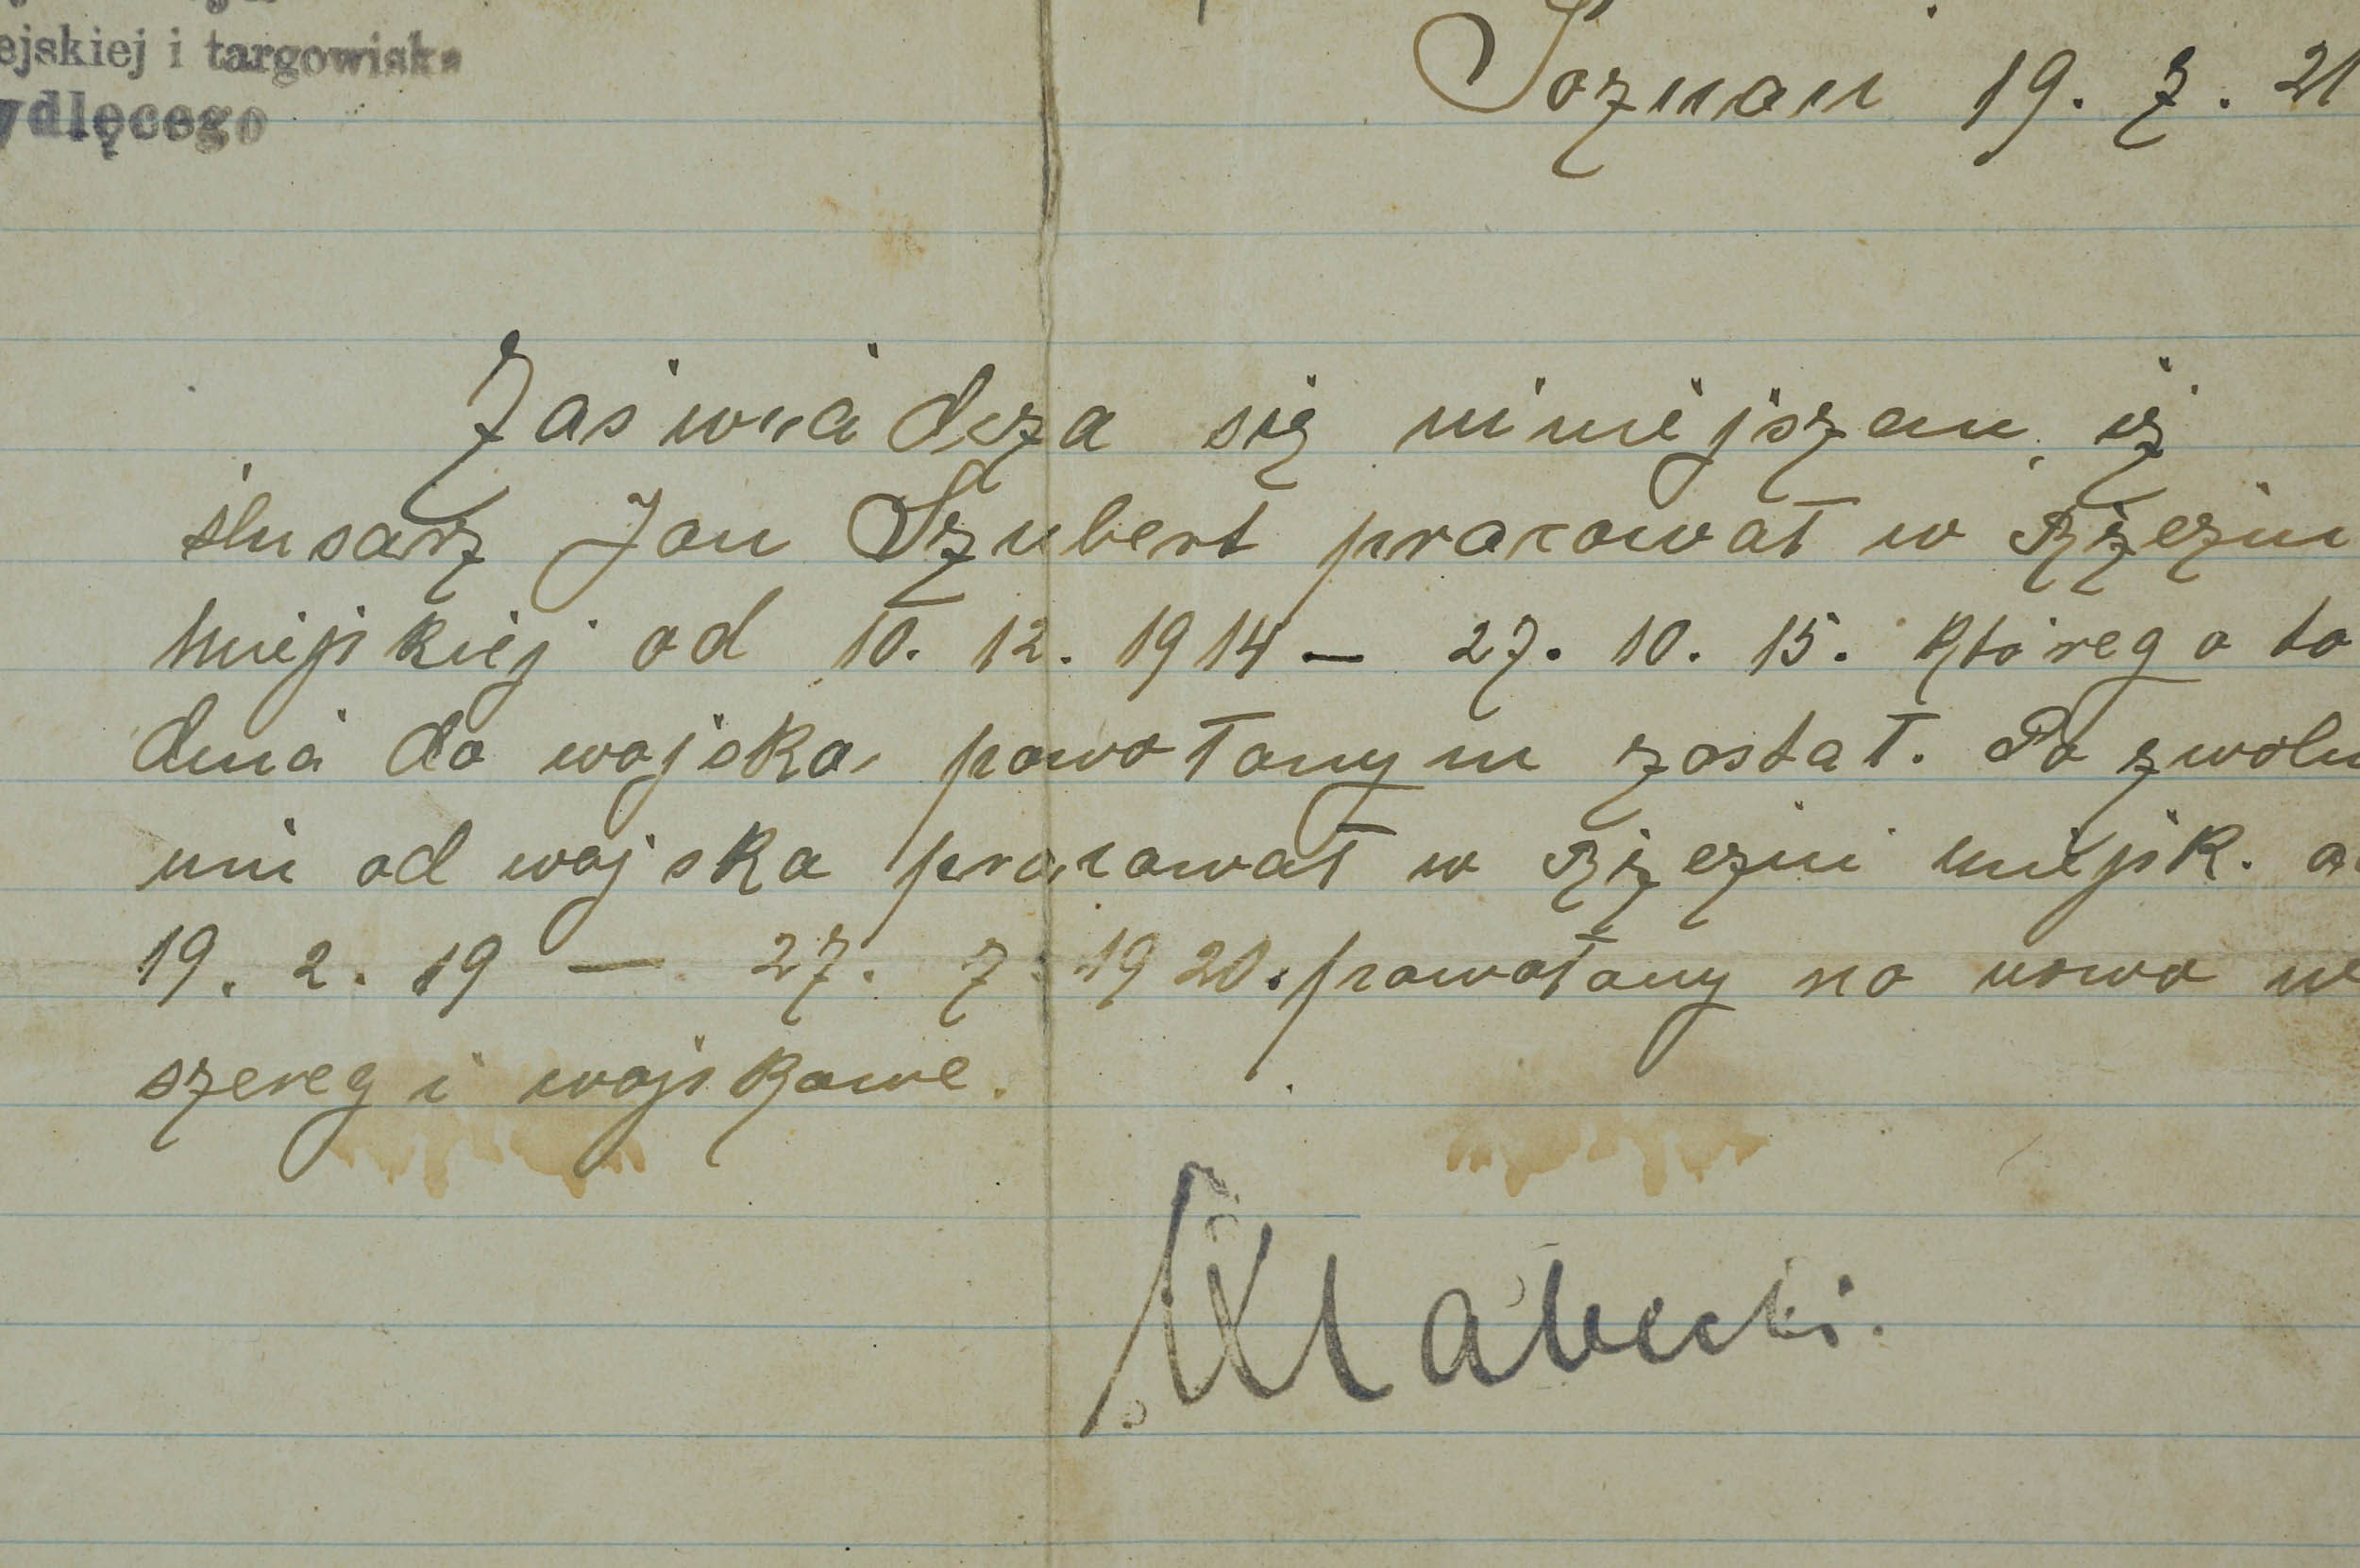 ejskiej i targowiska
ydlęcego
Poznań 19. 7. 21
Zaświadcza się niniejszem, iż
ślusarz Jan Szubert pracował w Rzeźni
miejskiej od 10. 12. 1914 – 27. 10. 15. którego to
dnia do wojska powołanym został. Po zwoln
niu od wojska pracował w Rzeźni miejsk. o
19. 2. 19 – 27. 7. 1920. powołany na nowo w
szeregi wojskowe.